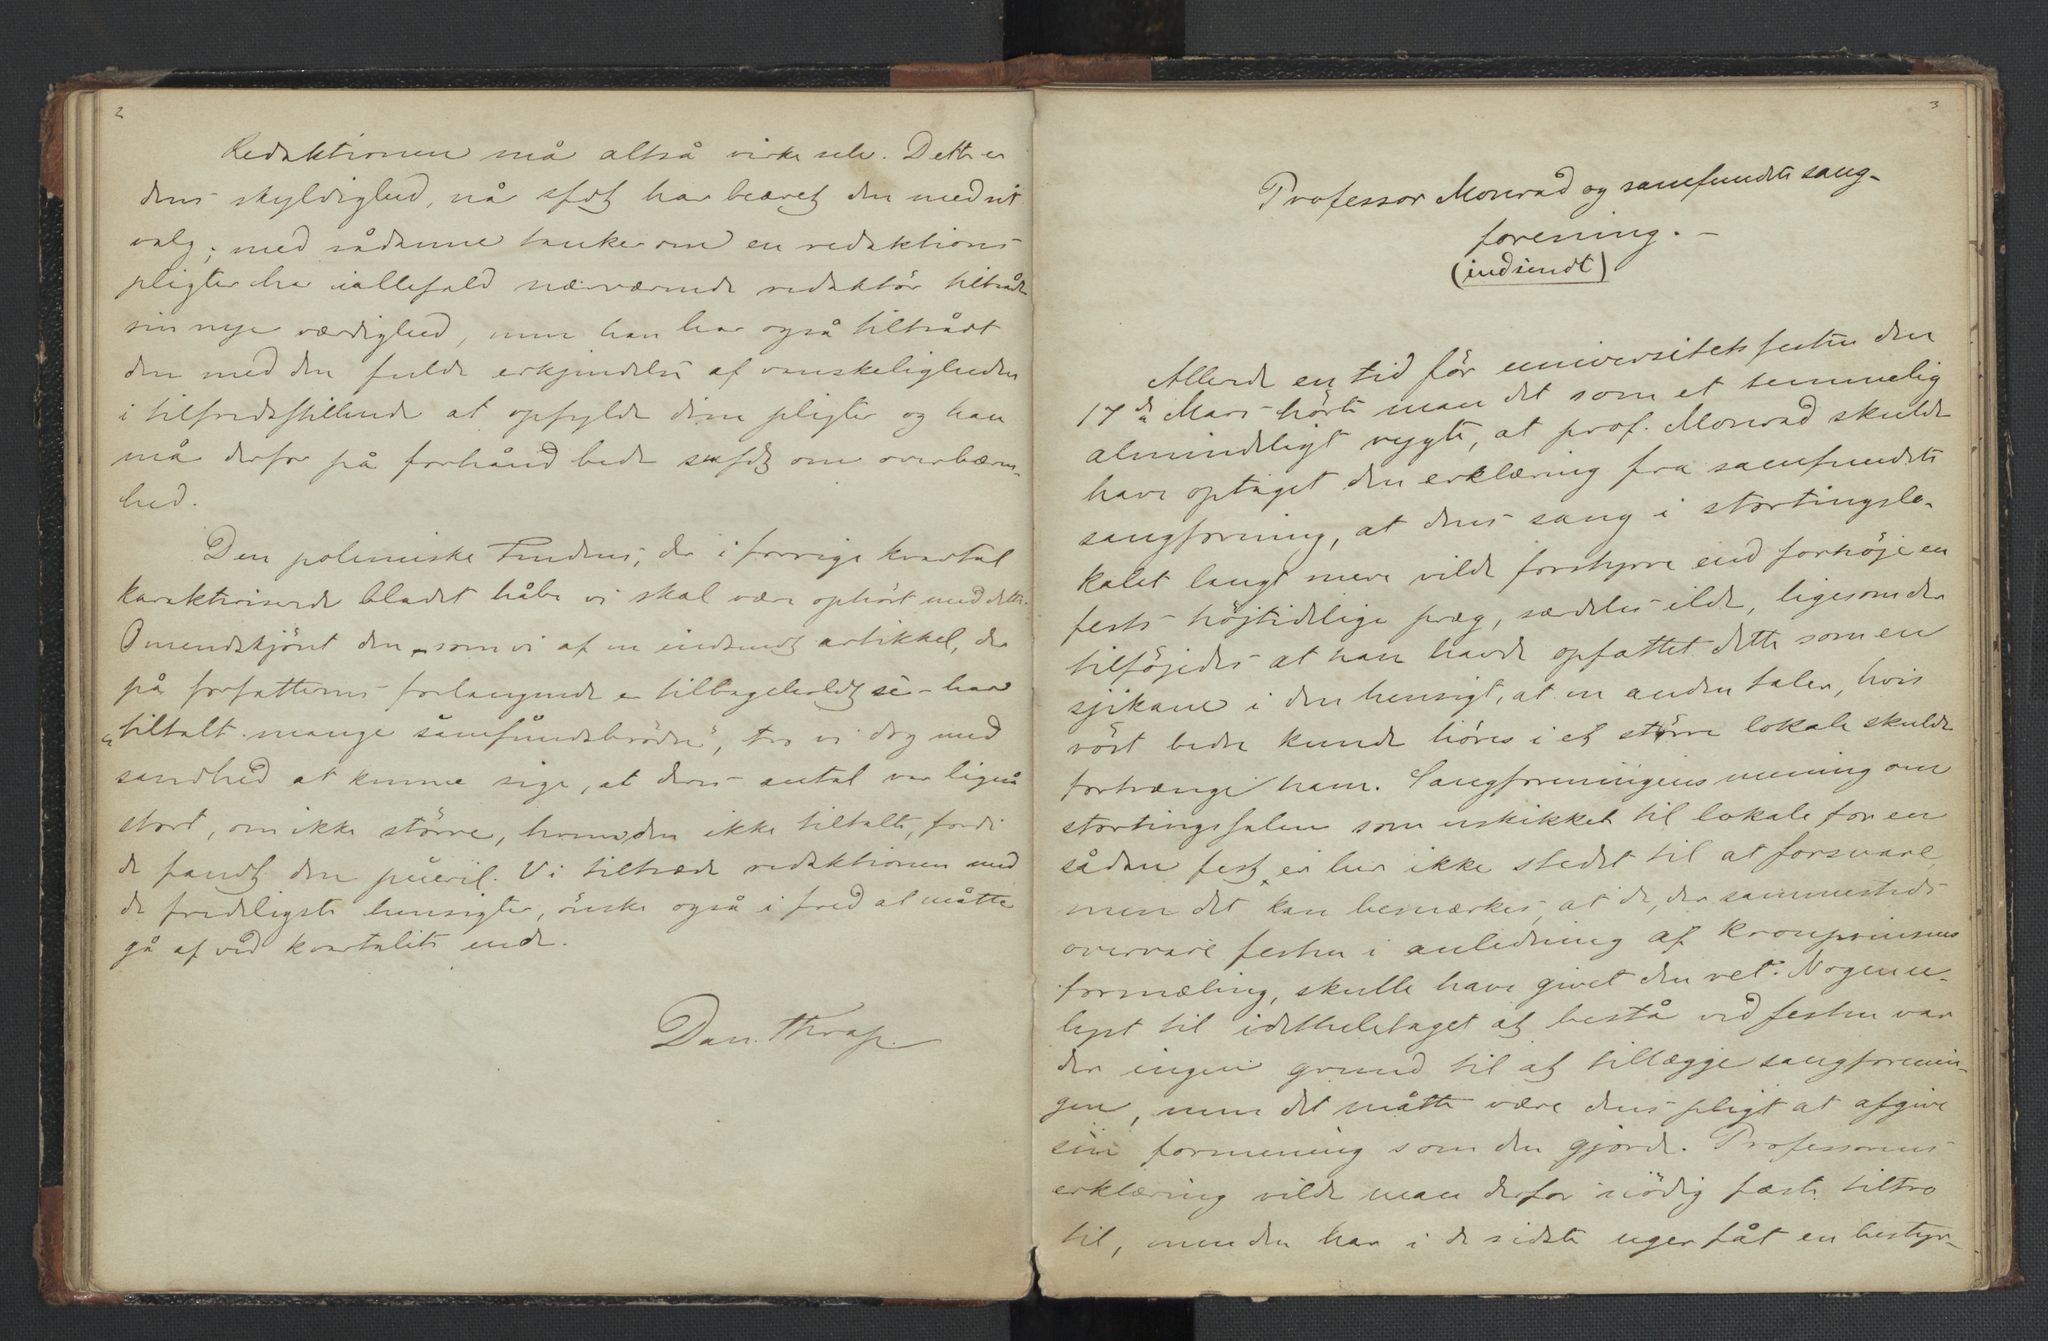 2
Redaktionen må altså virke selv. Dette er
dens skyldighed, nå sfdt har beæret den med sit
valg; med sådanne tanker om en redaktions
pligter har iallefald nærværende redaktör tiltrådt
sin nye værdighed, men han har også tiltrådt
den med den fulde erkjendelse af vanskeligheden
i tilfredsstillende at opfylde disse pligter og han
må derfor på forhånd bede sfdt om overbæren-
hed.
Den polemiske Tendens, der i forrige kvartal
karakteriserede bladet håbe vi skal være ophört med dette.
Omendskjönt den – som vi af en indsendt artikkel, der
på forfatterens forlangende er tilbageholdt se – har
"tiltalt mange såmfundsbrödre", tro vi dog med
sandhed at kunne sige, at deres antal var ligeså
stort, om ikke större, hvem den ikke tiltalte, fordi
de fandt den püeril. Vi tiltræde redaktionen med
de fredeligste hensigter, önske også i fred at måtte
gå af ved kvartalets ende.
Dan. Thrap.
3
Professor Monrad og samfundets sang-
forening. –
(indsendt)
Allerede en tid för universitetsfesten den
17de Mars hörte man det som et temmelig
almindeligt rygte, at prof. Monrad skulde
have optaget den erklæring fra samfundets
sangforening, at dens sang i stortingslo-
kalet langt mere vilde forstyrre end forhöje en
fests höjtidelige præg, særdeles ilde, ligesom der
tilföjedes at han havde opfattet dette som en
sjikane i den hensigt, at en anden taler, hvis
röst bedre kunde höres i et större lokale skulde
fortrænge ham. Sangforeningens mening om
stortingssalen som uskikket til lokale for en
sådan fest er her ikke stedet til at forsvare,
men det kan bemærkes, at de, der sammesteds
overvare festen i anledning af kronprinsens
formæling, skulle have givet den ret. Nogen u-
lyst til idetheletaget at bestå ved festen var
der ingen grund til at tillægge sangforenin-
gen, men det måtte være dens pligt at afgive
sin formening som den gjorde. Professorens
erklæring vilde man derfor nödig fæste tiltro
til, men den har i de sidste uger fåt en bestyr-